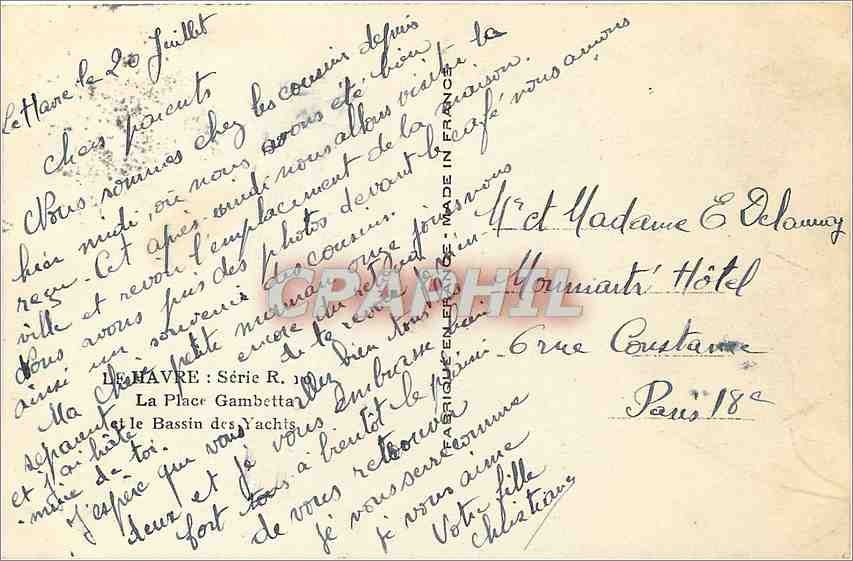 Le Havre, le 20 Juillet
Chers parents
Nous sommes chez les cousins depuis
hier midi, où nous avons été bien
reçu. Cet après-midi nous allons visiter la
ville et revoir l'emplacement de la maison.
Nous avons pris des photos devant le café nous aurons
ainsi un souvenir des cousins.
Ma chère petite maman onze jours nous
séparent encore du retour
et j'ai hâte de te revoir
de toi.
J'espère que vous allez bien tous les
deux et je vous embrasse bien
fort tous à bientôt le plaisir
de vous retrouver
je vous serre comme
je vous aime
Votre fille
Christiane
Mr et Madame E Delaunay
Montmartr' Hôtel
6 rue Constance
Paris 18e
LE HAVRE : Série R.
La Place Gambetta
et le Bassin des Yachts
FABRIQUÉ EN FRANCE - MADE IN FRANCE
CPARHIL